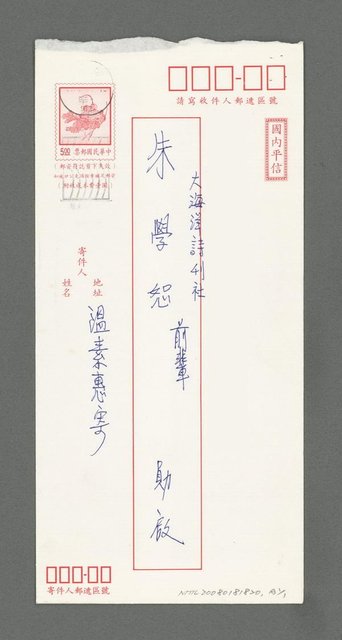 請寫收件人郵遞區號
國內平信
大海洋詩刊社
朱學恕 前輩 勛啟
5.00
中華民國郵票
寄件人
地址
姓名
溫素惠寄
寄件人郵遞區號
NMTL20080181820